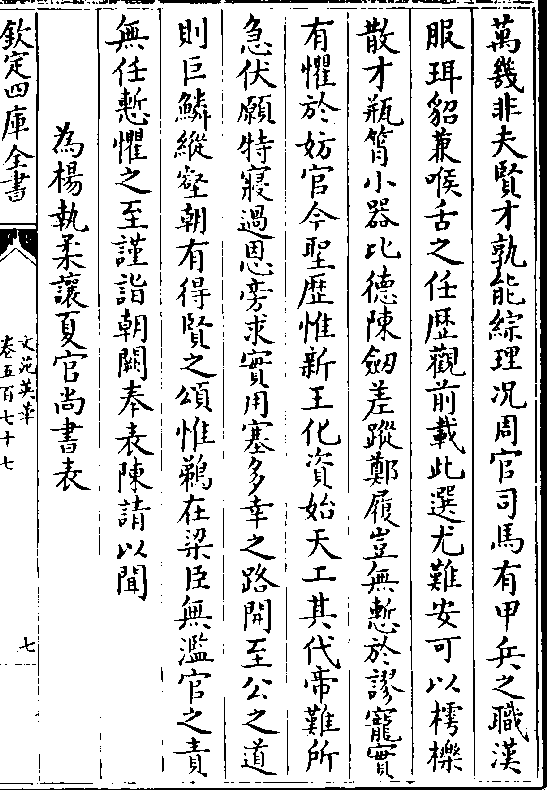 萬幾非夫賢才孰能綜理况周官司馬有甲兵之職漢
服珥貂兼喉舌之任歴觀前載此選尤難安可以樗櫟
散才瓶筲小器比德陳劔差蹤鄭履豈無慙於謬寵實
有懼於妨官今聖歴惟新王化資始天工其代帝難所
急伏願特寢過恩旁求實用塞多幸之路開至公之道
則巨鱗縱壑朝有得賢之頌惟鵜在梁臣無濫官之責
無任慙懼之至謹詣朝闕奉表陳請以聞
為楊執柔讓夏官尚書表
欽定四庫全書
文苑英華
卷五百七十七
七